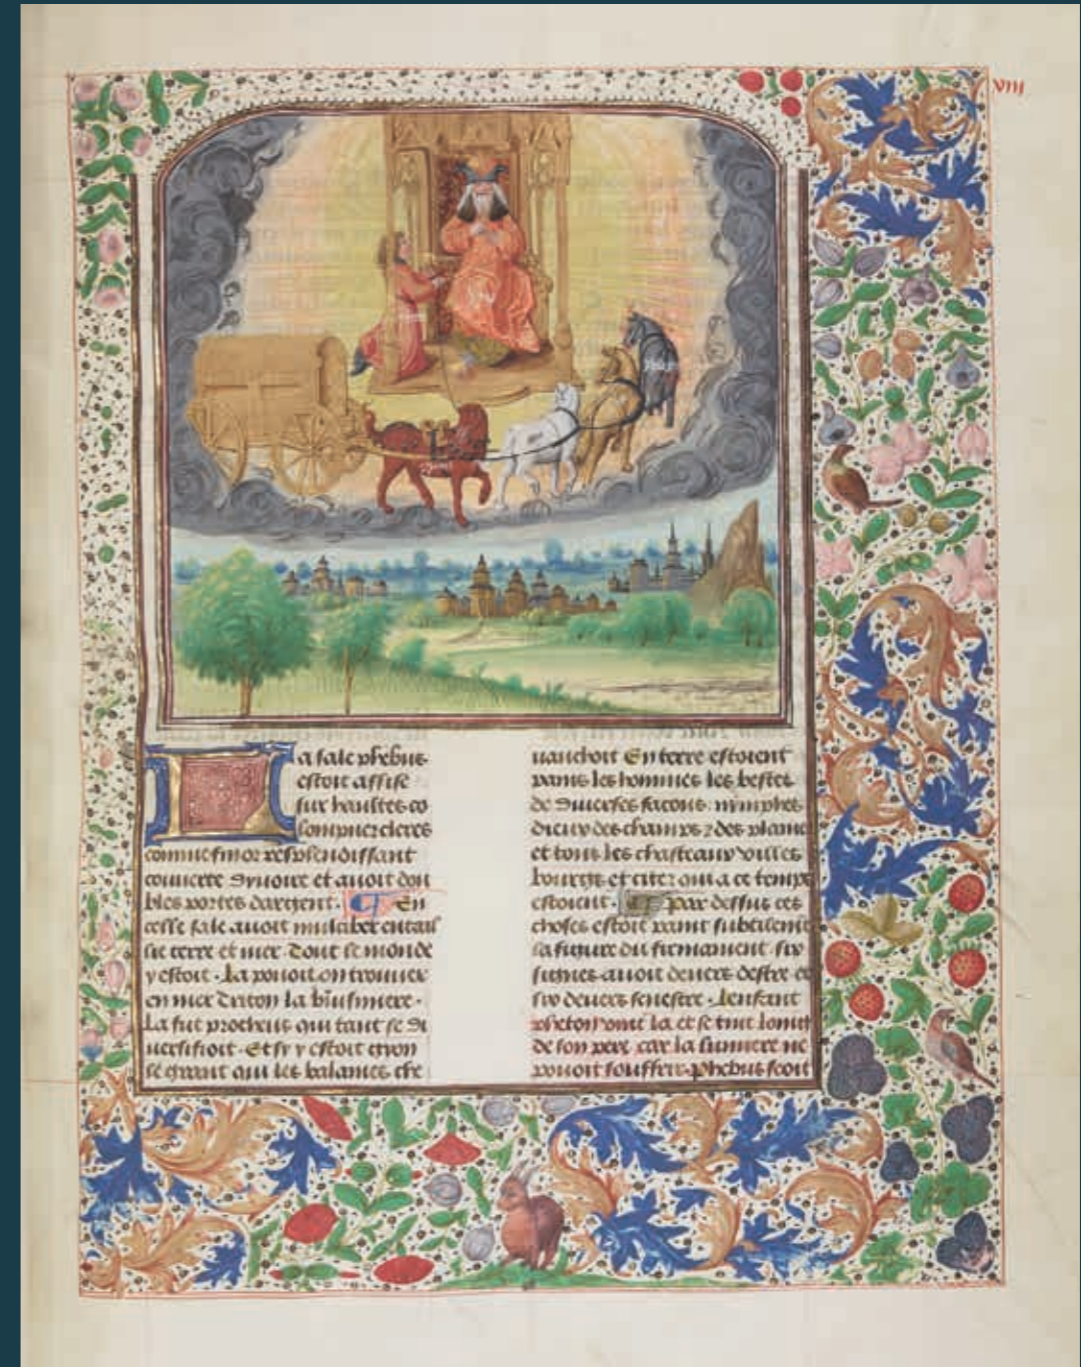 viii
La sale phebus
estoit assise
sur haultes co
lompnez cleres
comme fin or resplendissant
couuerte dyuoire et auoit dou
bles portes dargent. En
celle sale auoit mulciber entail
lie terre et mer. Tout le monde
y estoit. La pouoit on trouuer
en mer triton la
La fut protheus qui tant se di
uersifioit. Et sy y estoit egeon
le geant qui les balaines che
uauchoit En terre estoient
pains les hommes les bestes
de diuerses facons. nymphes
dieux des champs et des
et tous les chasteaux villes
bourgz et citez qui a ce temps
estoient. Par dessus ces
choses estoit paint subtilement
la figure du firmament. six
signes auoit deuers destre et
six deuers senestre. Lenfant
pheton vint la et se tint loing
de son pere car la lumiere ne
pouoit souffrir. Phebus seoit